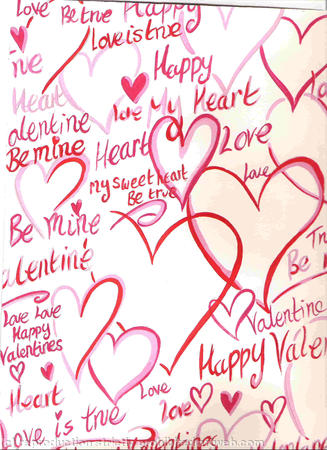 Love Be true Happy
Love is true
ine
Happy
Heart
love My Heart
alentine
Be mine Heart Love
my sweet heart
Be true
Love
Be Mine
Tr
Be m
alentine
Love Love
Happy
Valentines
Valentine
Happy Valen
Heart
Love
love
Love is true